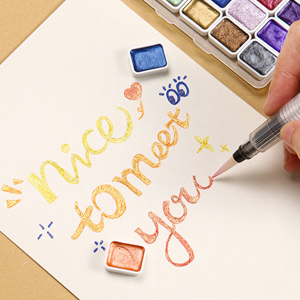 nice
to meet
you